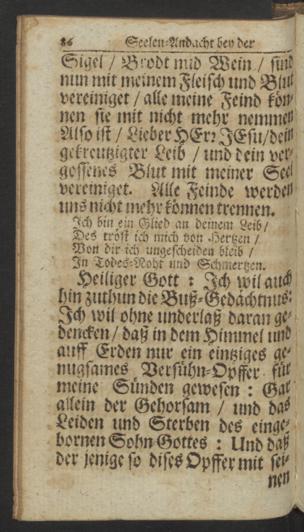 86 Seelen-Andacht bey der
Sigel / Brodt und Wein / sind
nun mit meinem Fleisch und Blut
vereiniget / alle meine Feind kön-
nen sie mit nicht mehr nemmen
Also ist / Lieber HErr JEsu / dein
gekreutzigter Leib / und dein ver-
gossenes Blut mit meiner Seel
vereiniget. Alle Feinde werden
uns nicht mehr können trennen.
Ich bin ein Glied an deinem Leib /
Des tröst ich mich von Hertzen /
Von dir ich ungescheiden bleib /
In Todes-Noht und Schmertzen.
Heiliger Gott : Ich wil auch
hin zuthun die Buß-Gedächtnus:
Ich wil ohne underlaß daran ge-
dencken / daß in dem Himmel und
auff Erden nur ein eintziges ge-
nugsames Versühn-Opffer für
meine Sünden gewesen : Gar
allein der Gehorsam / und das
Leiden und Sterben des einge-
bornen Sohn Gottes : Und daß
der jenige so dises Opffer mit sei-
nen